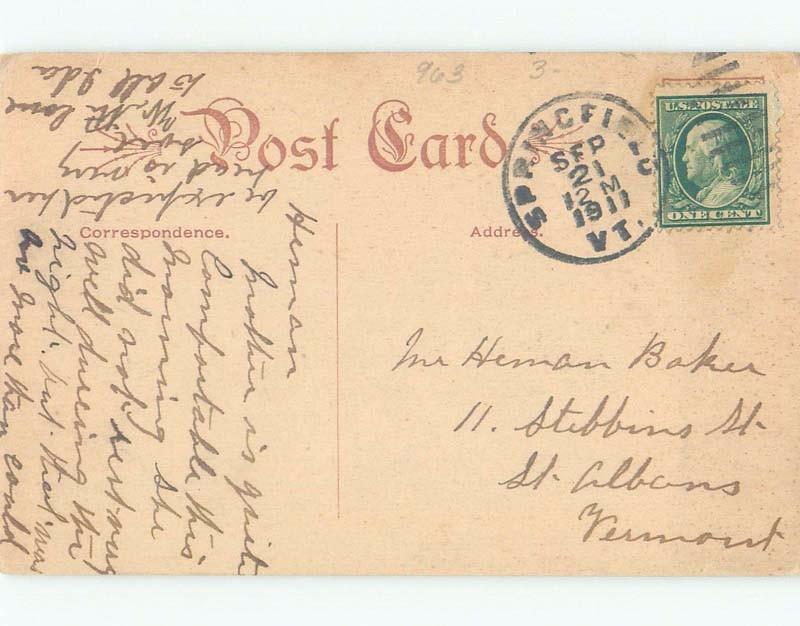 963 3-
Post Card
SPRINGFIELD
SEP
21
12 M
1911
VT.
U.S. POSTAGE
ONE CENT
Correspondence.
Address.
Mr Heman Baker
11. Stebbins St-
St. Albans
Vermont
Heman
Mother is quite
Comfortable this
morning she
did not rest very
well dureing the
night. but that was
no more than could
be expected her
head is very
sore.
W. H. love
to all Ida